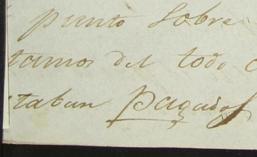 punto sobre
tamos del todo
taban pagados